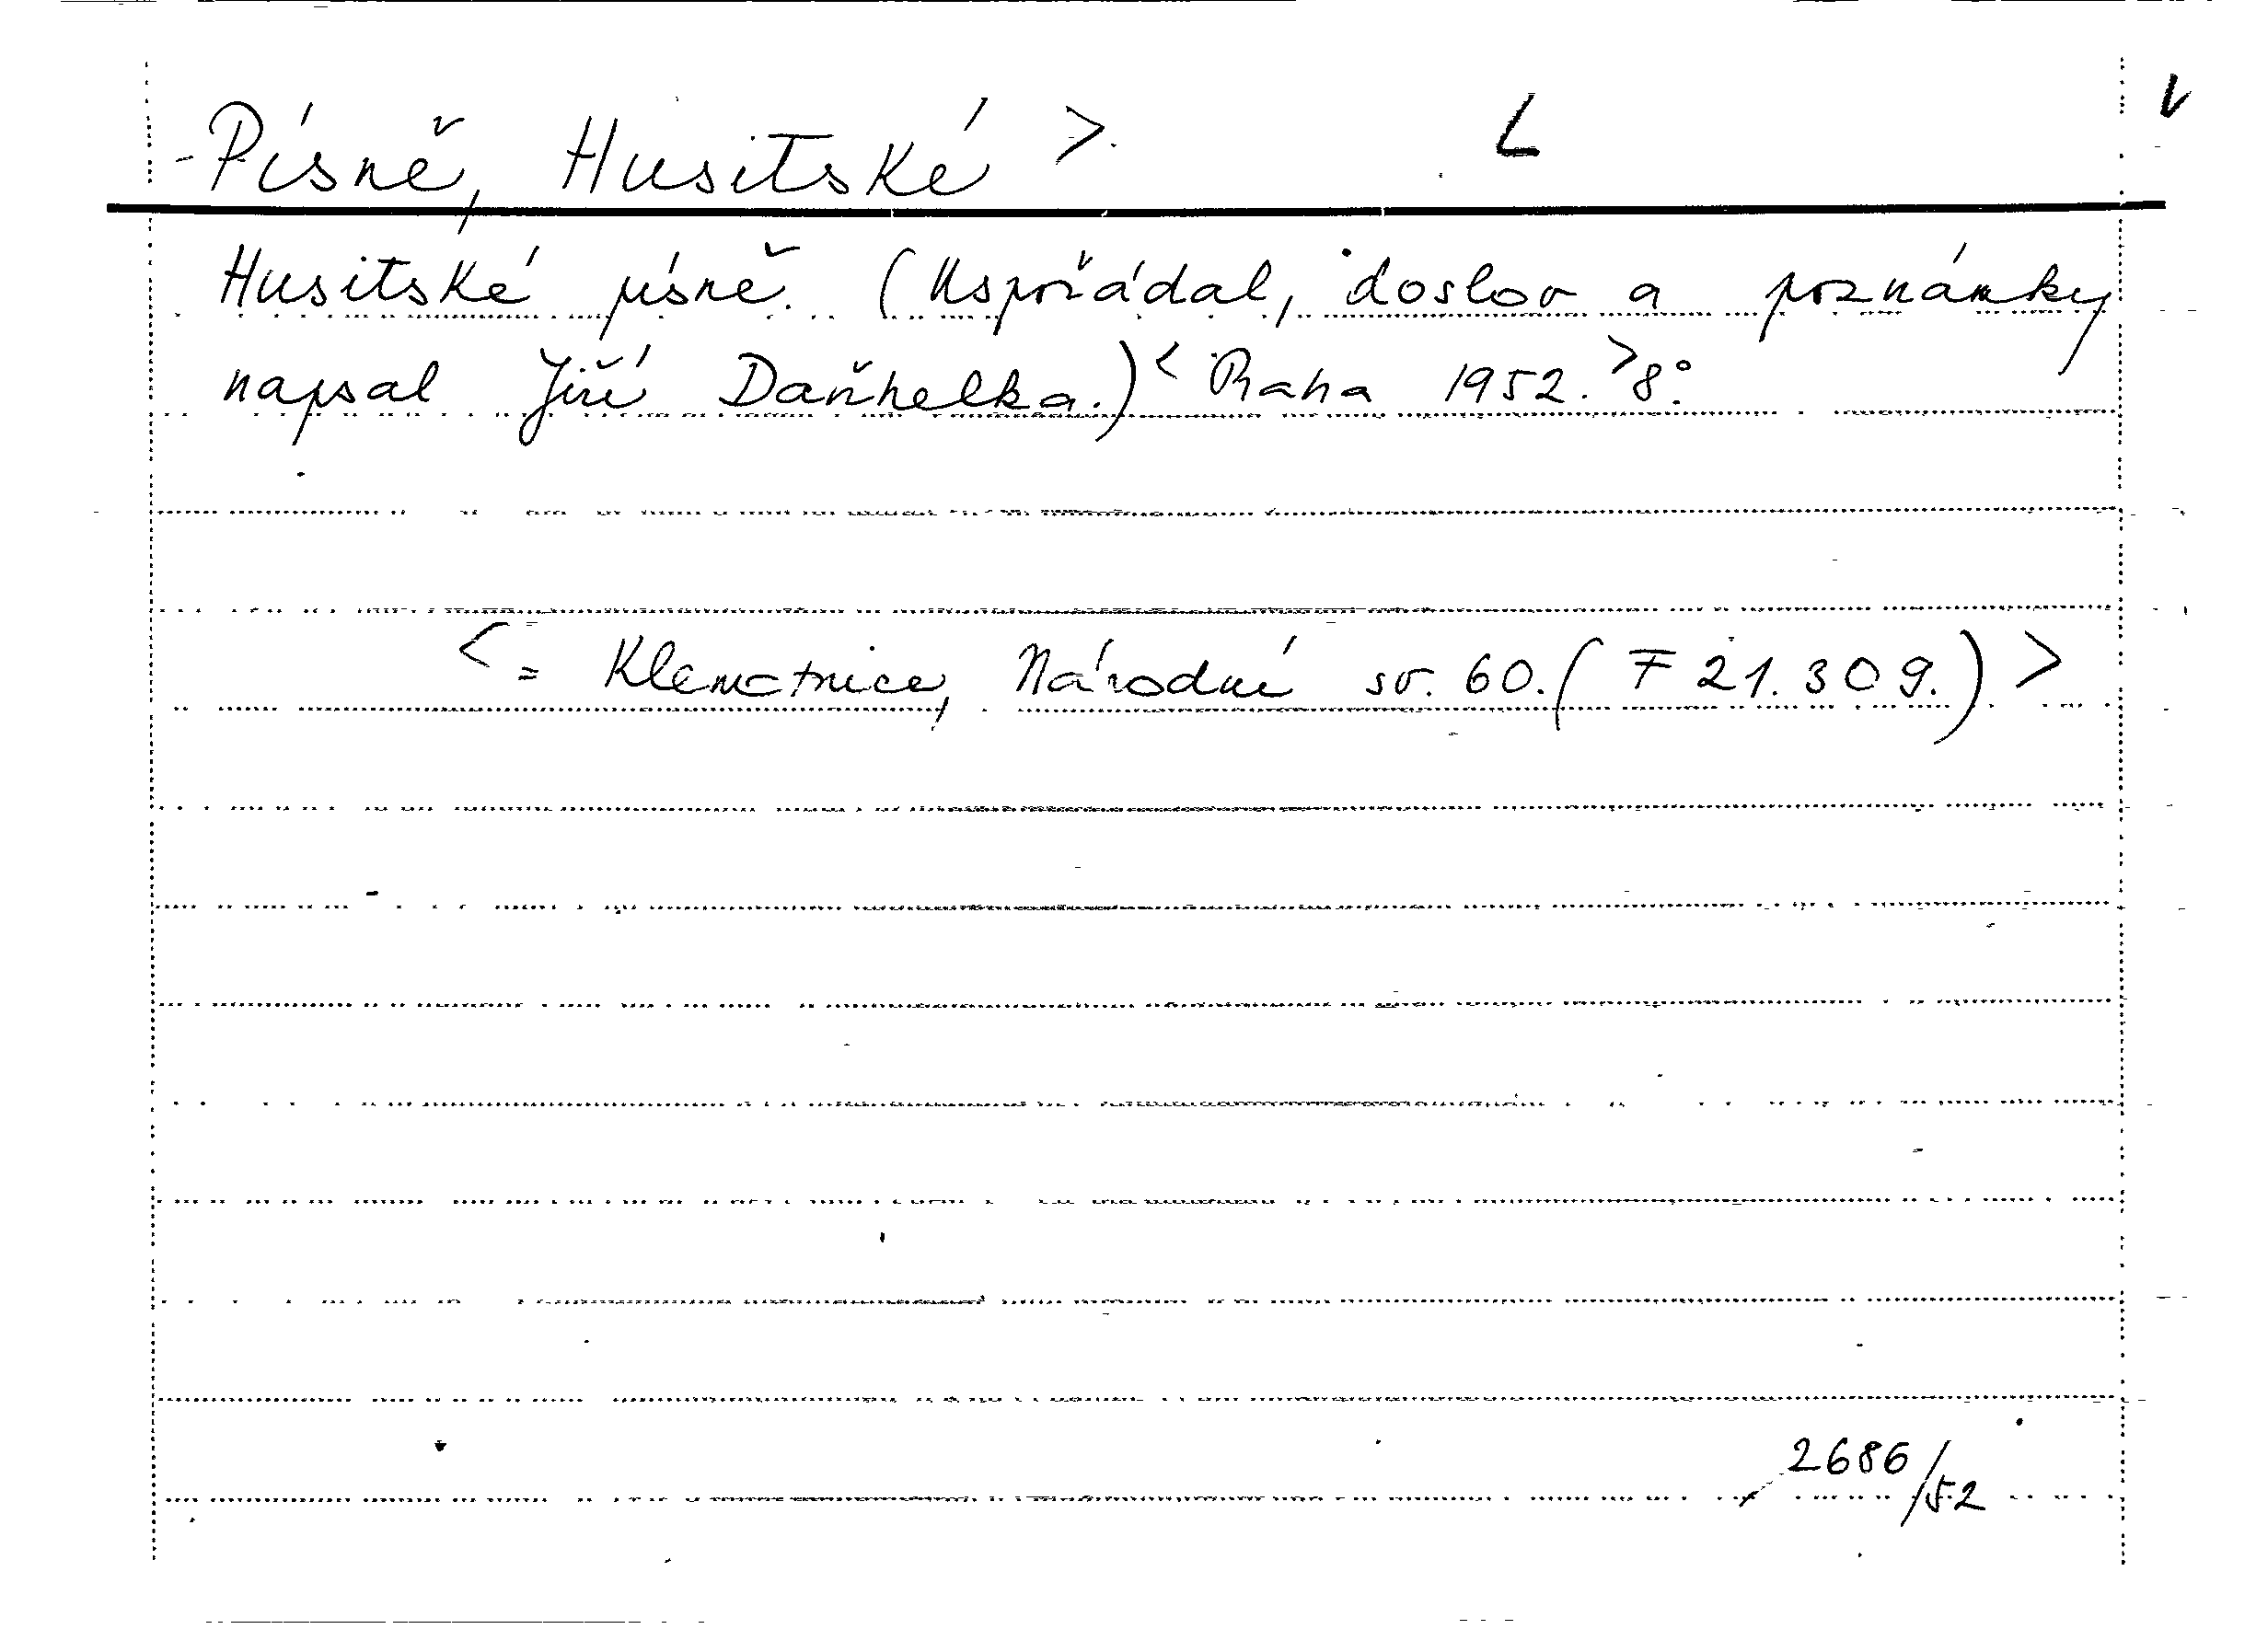 -Písně, Husitské > L V
Husitské písně. (Uspořádal, doslov a poznámky
napsal Jiří Daňhelka.) < Praha 1952. > 8°.
< = Klenotnice, Národní sv. 60. (F 21.309.) >
2686/52